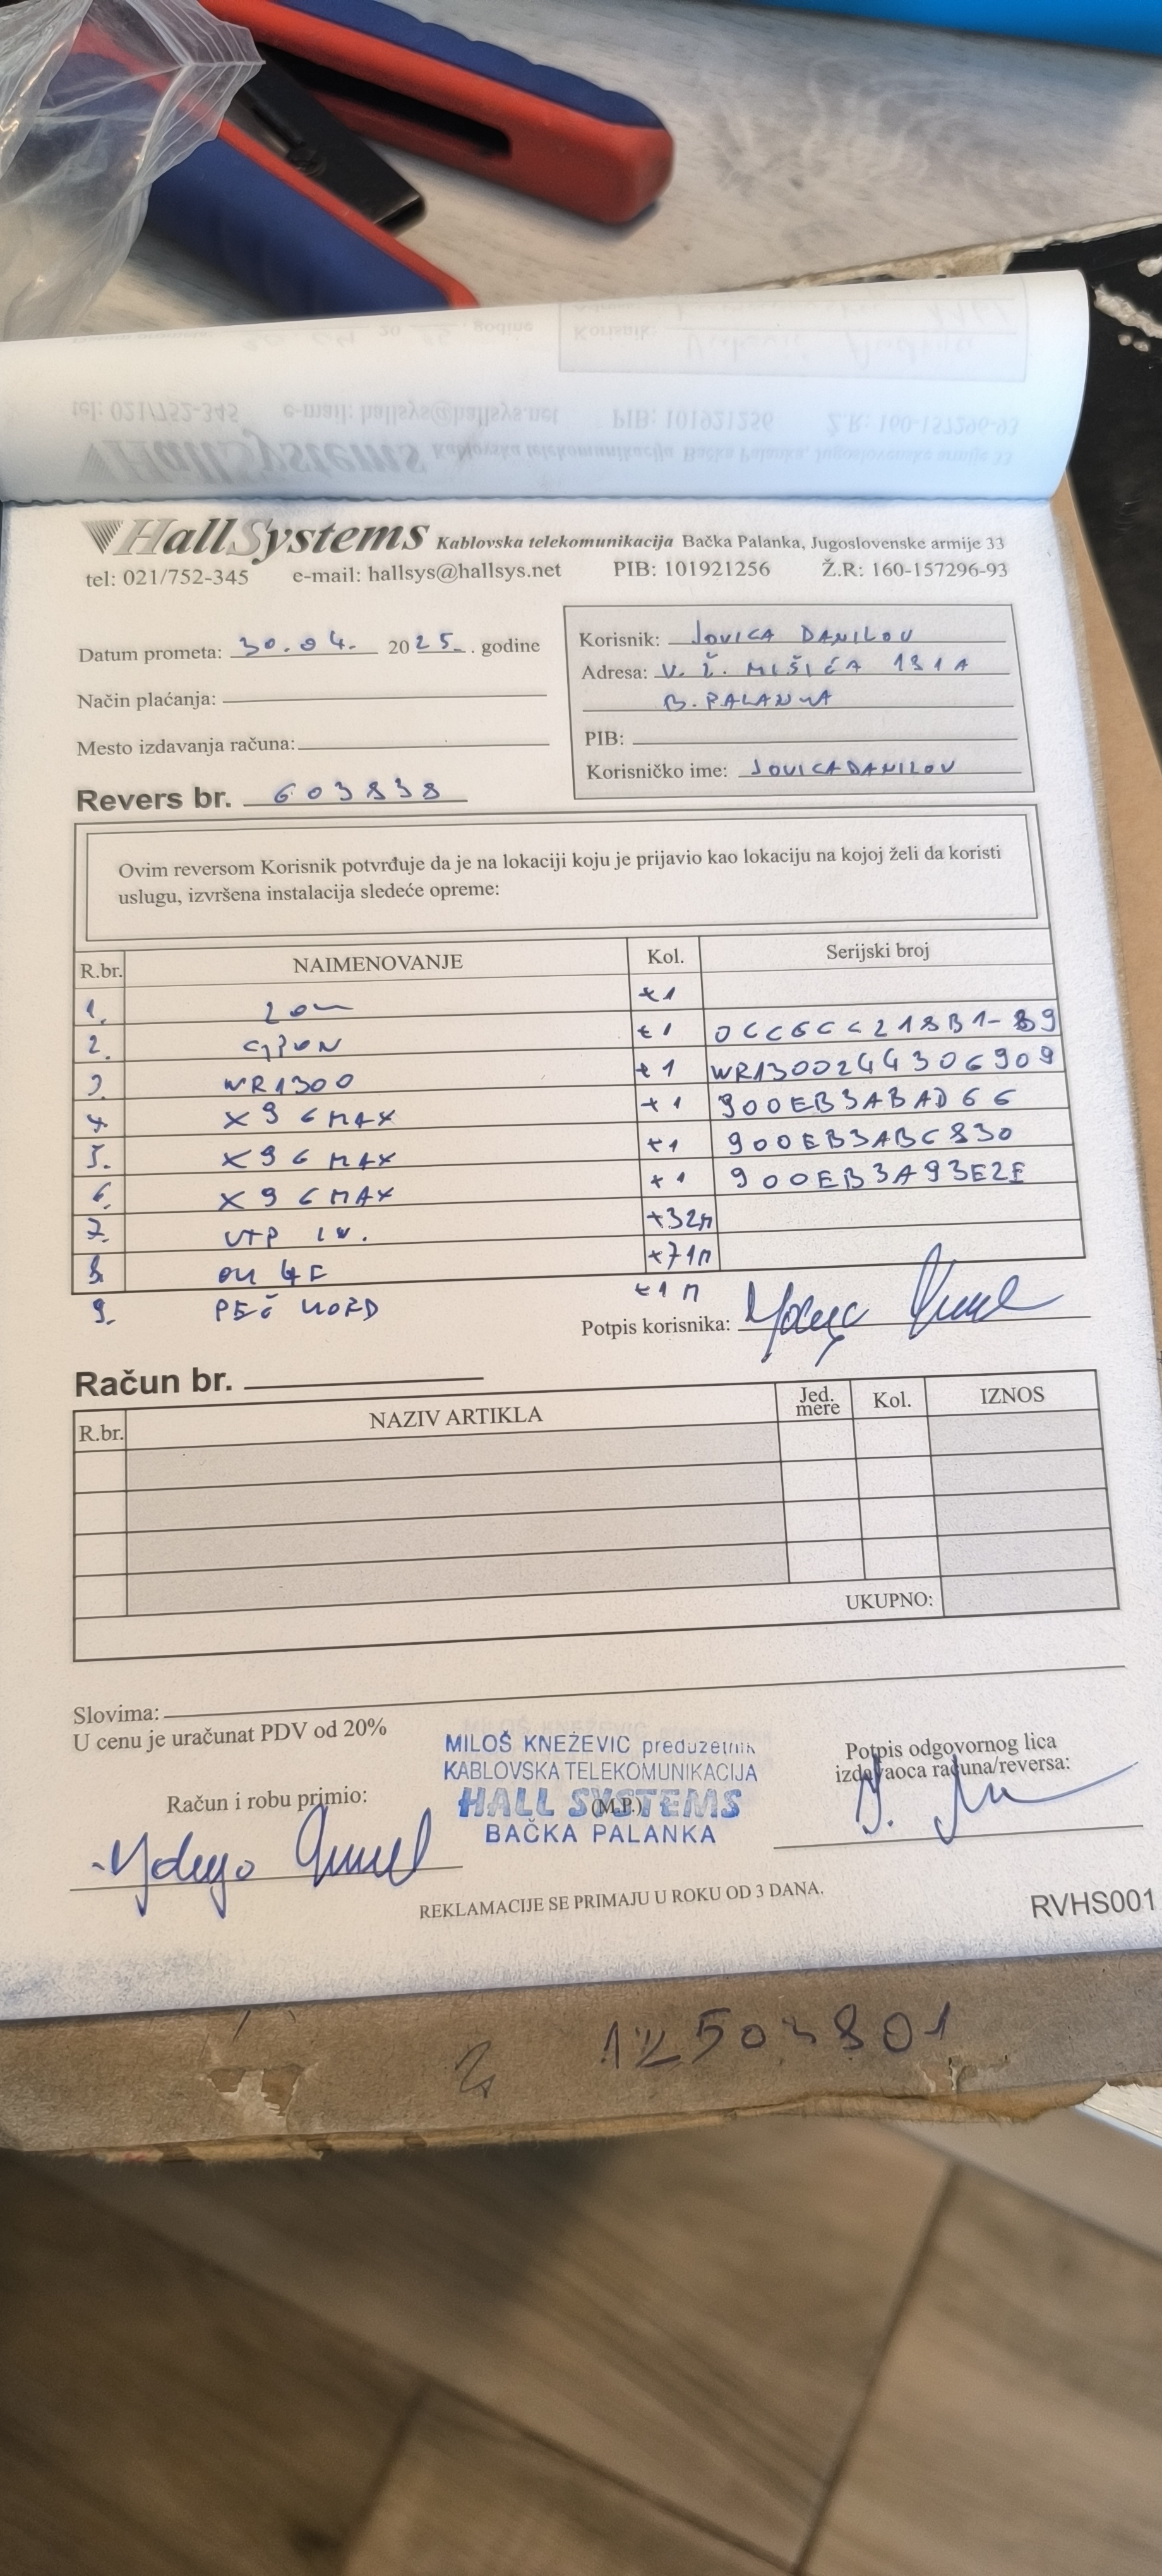 HallSystems Kablovska telekomunikacija Bačka Palanka, Jugoslovenske armije 33
tel: 021/752-345 e-mail: hallsys@hallsys.net PIB: 101921256 Ž.R: 160-157296-93
Datum prometa: 30.04. 2025. godine
Način plaćanja:
Mesto izdavanja računa:
Korisnik: JOVICA DANILOV
Adresa: V. Ž. MIŠIĆA 131A
B. PALANKA
PIB:
Korisničko ime: JOVICADANILOV
Revers br. 603838
Ovim reversom Korisnik potvrđuje da je na lokaciji koju je prijavio kao lokaciju na kojoj želi da koristi
uslugu, izvršena instalacija sledeće opreme:
R.br. NAIMENOVANJE Kol. Serijski broj
1. +1
2. GPON +1
3. WR1300 +1 WR1300244306909
4. X96 MAX +1 900EB3ABAD66
5. X96 MAX +1 900EB3ABC830
6. X96 MAX +1 900EB3A93E2E
7. UTP +32m
8. +71m
9. +1
Potpis korisnika:
Račun br.
R.br. NAZIV ARTIKLA Jed. mere Kol. IZNOS
UKUPNO:
Slovima:
U cenu je uračunat PDV od 20%
Račun i robu primio:
MILOŠ KNEŽEVIC preduzetnik
KABLOVSKA TELEKOMUNIKACIJA
HALL SYSTEMS
(M.P.)
BAČKA PALANKA
Potpis odgovornog lica
izdavaoca računa/reversa:
REKLAMACIJE SE PRIMAJU U ROKU OD 3 DANA.
RVHS001